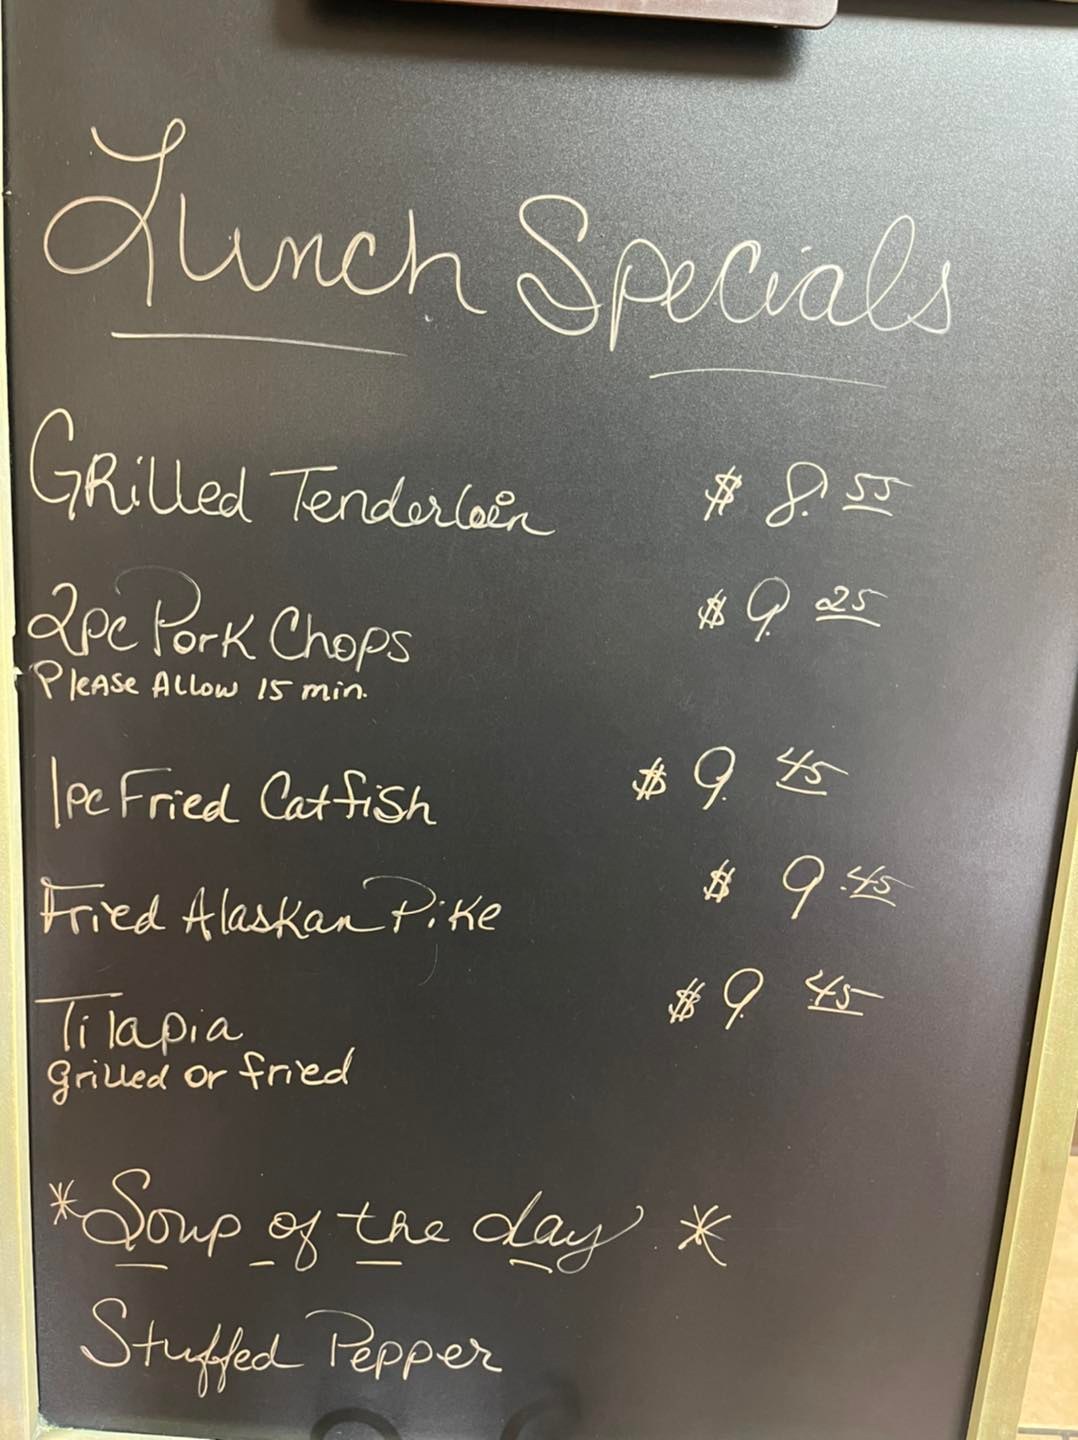 Lunch Specials
Grilled Tenderloin $ 8.55
2pc Pork Chops $ 9.25
Please Allow 15 min.
1pc Fried Catfish $ 9.45
Fried Alaskan Pike $ 9.45
Tilapia $ 9.45
grilled or fried
*Soup of the day*
Stuffed Pepper